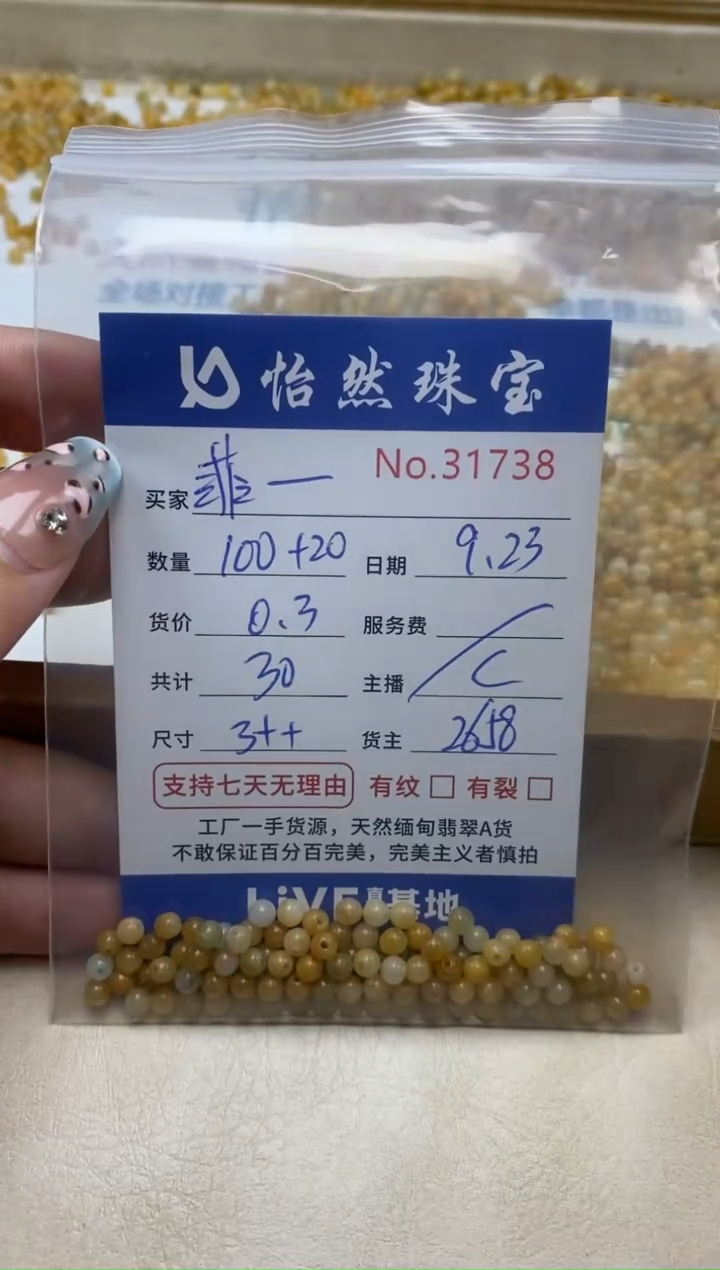 全场对接工
怡然珠宝
No.31738
买家 菲一
数量 100+20 日期 9.23
货价 0.3 服务费 /
共计 30 主播 C
尺寸 3++ 货主 2658
支持七天无理由 有纹 □ 有裂 □
工厂一手货源，天然缅甸翡翠A货
不敢保证百分百完美，完美主义者慎拍
LiVE 基地